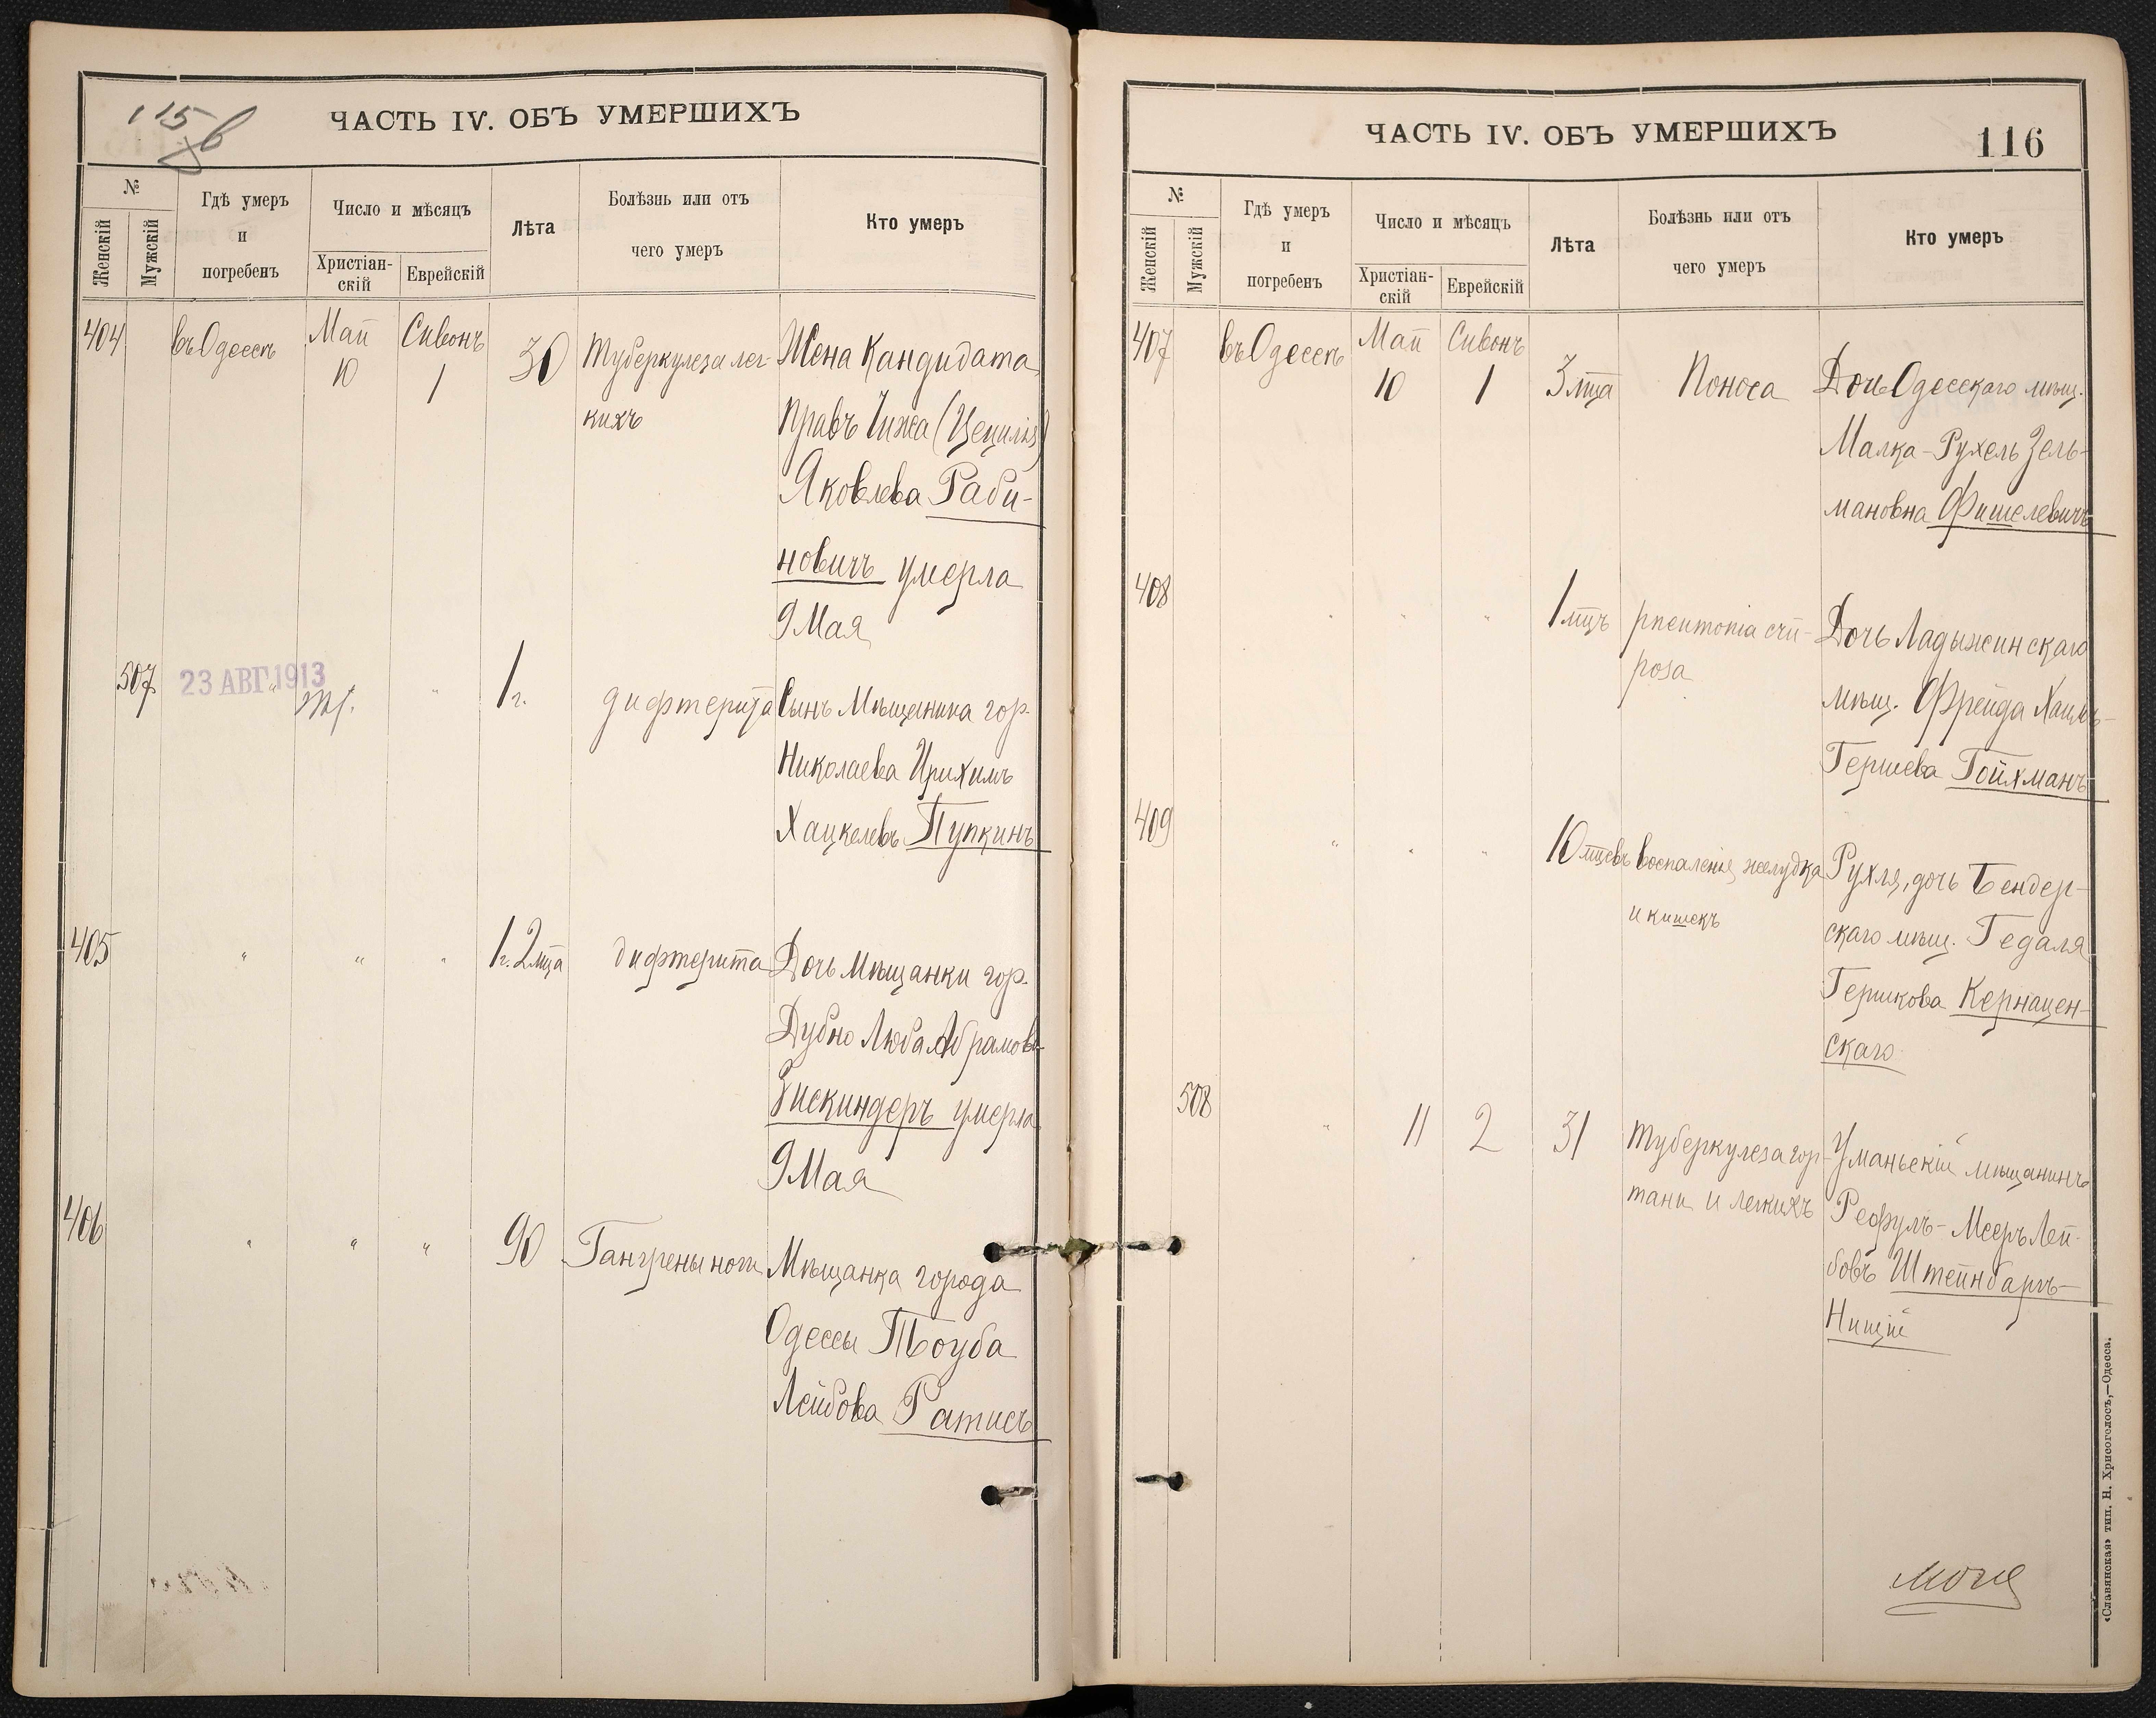 115 об
ЧАСТЬ IV. ОБЪ УМЕРШИХЪ
№
Женскій
Мужскій
Гдѣ умеръ
и
погребенъ
Число и мѣсяцъ
Христіан-
скій
Еврейскій
Лѣта
Болѣзнь или отъ
чего умеръ
Кто умеръ
404
въ Одессѣ
Май
10
Сивонъ
1
30
Туберкулеза лег-
кихъ
Жена Кандидата
Правъ Чижа (Цецилія)
Яковлева Раби-
новичъ умерла
9 Мая
507
23 АВГ 1913
"
"
1 г.
дифтерита
Сынъ Мѣщанина гор.
Николаева Ирихимъ
Хацкелевъ Пупкинъ
405
"
"
"
1 г. 2 мца
дифтерита
Дочь Мѣщанки гор.
Дубно Люба Абрамов.
Зискиндеръ умерла
9 Мая
406
"
"
"
90
Гангрены ноги
Мѣщанка города
Одессы Тоуба
Лейбова Ратисъ
ЧАСТЬ IV. ОБЪ УМЕРШИХЪ
116
№
Женскій
Мужскій
Гдѣ умеръ
и
погребенъ
Число и мѣсяцъ
Христіан-
скій
Еврейскій
Лѣта
Болѣзнь или отъ
чего умеръ
Кто умеръ
407
въ Одессѣ
Май
10
Сивонъ
1
3 мца
Поноса
Дочь Одесскаго мѣщ.
Малка-Рухель Зель-
мановна Фишелевичъ
408
"
"
"
1 мцъ
pneumonia cru-
posa
Дочь Ладыжинскаго
мѣщ. Фрейда Хаимъ-
Гершева Гойхманъ
409
"
"
"
10 мцевъ
воспаленія желудка
и кишекъ
Рухля, дочь Бендер-
скаго мѣщ. Гедаля
Гершкова Кернацен-
скаго
508
"
11
2
31
Туберкулеза гор-
тани и легкихъ
Уманьскій мѣщанинъ
Рефулъ-Мееръ Лей-
бовъ Штейнбаргъ-
Нищій
«Славянская» тип. Н. Хрисогелосъ,—Одесса.